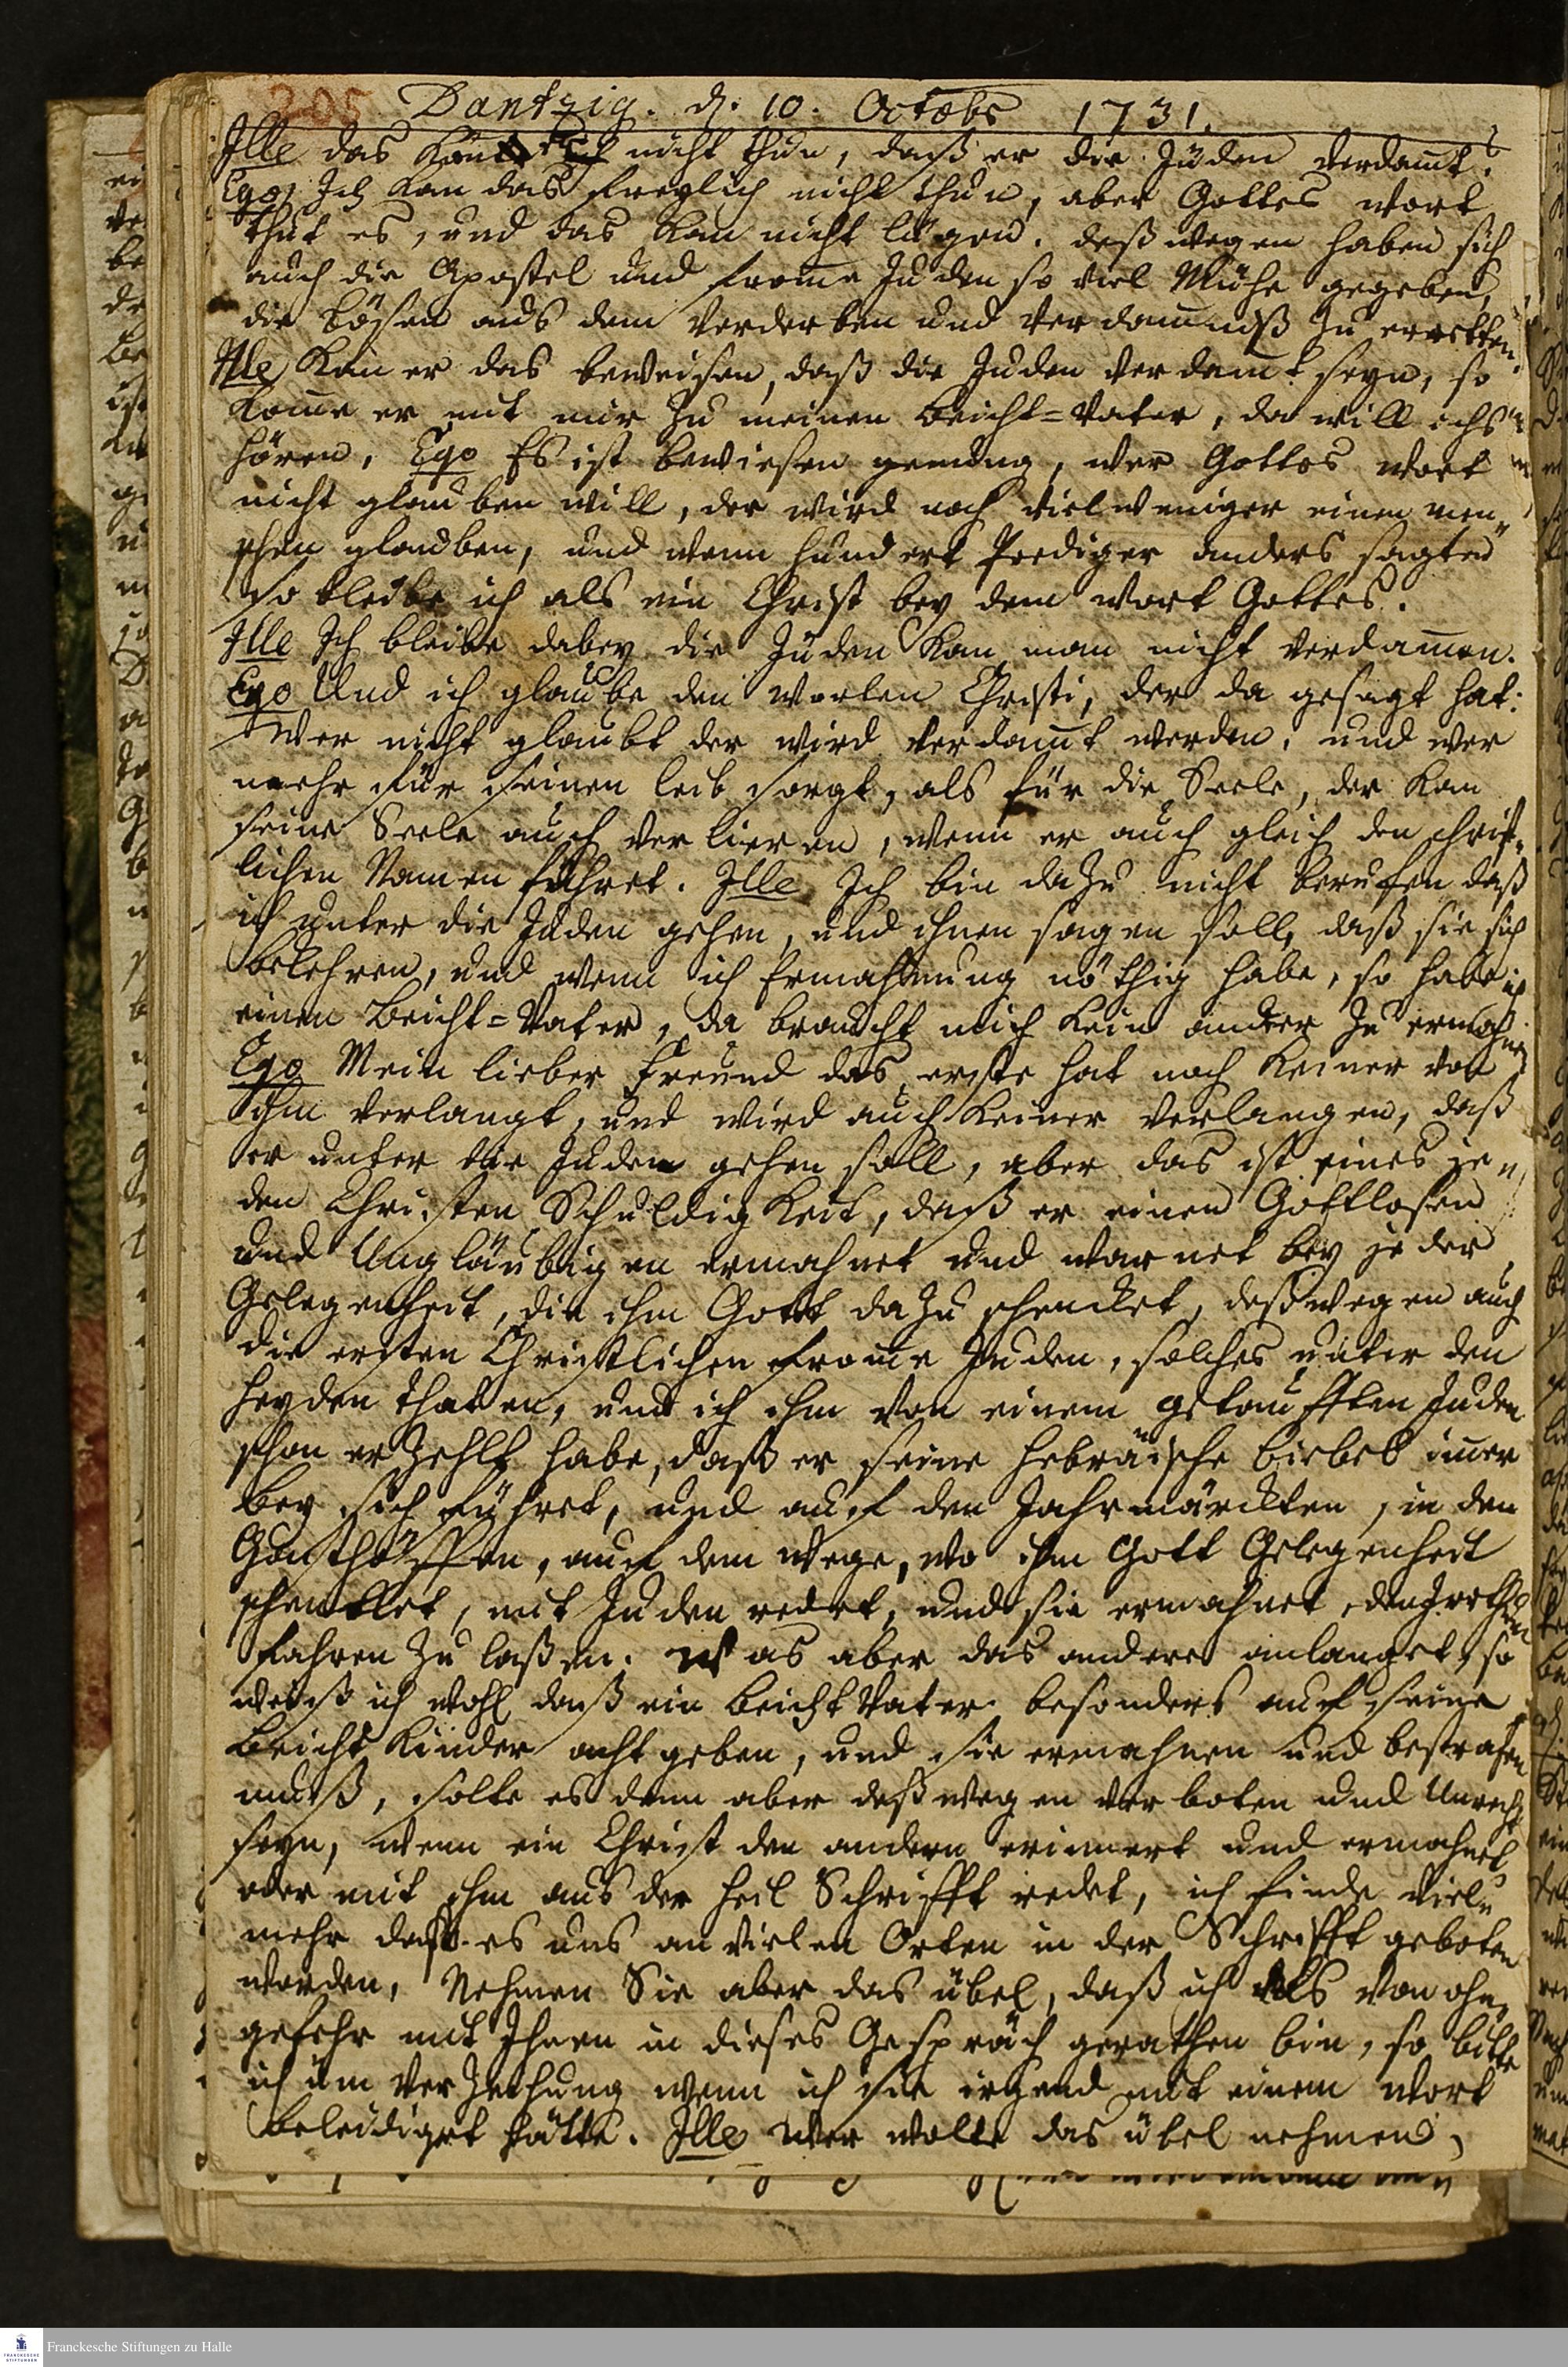 205 Dantzig. d. 10. Octobr 1731.
Ille das kan er nicht thun, daß er die Juden verdam̄t.
Ego, Ich kan das freylich nicht thun, aber Gottes wort
thut es, und das kan nicht lügen. deßwegen haben sich
auch die Apostel und from̄e Juden so viel Mühe gegeben,
die bösen aus dem verderben und verdam̄niß zu erretten.
Ille kan er das beweisen, daß die Juden verdam̄t seyn, so
kom̄e er mit mir zu meinen beicht=vater, da will ichs
hören, Ego Es ist bewiesen genung, wer Gottes wort
nicht glauben will, der wird noch vielweniger einen men„
schen glauben, und wenn hundert Prediger anders sagten
so bleibe ich als ein Christ bey dem wort Gottes.
Ille Ich bleibe dabey die Juden kan man nicht verdam̄en.
Ego Und ich glaube den worten Christi, der da gesagt hat:
Wer nicht glaubt der wird verdam̄t werden, und wer
mehr für seinen leib sorgt, als für die Seele, der kan
seine Seele auch verlieren, wenn er auch gleich den christ„
lichen Namen führet. Ille Ich bin dazu nicht berufen daß
ich unter die Juden gehen, und ihnen sagen soll, daß sie sich
bekehren, und wenn ich Ermahnung nöthig habe, so habe ich
einen Beicht=Vater, da braucht mich kein ander zu ermahnen
Ego Mein lieber Freund das erste hat noch keiner von
ihm verlangt, und wird auch keiner verlangen, daß
er unter die Juden gehen soll, aber das ist eines je„
den Christen Schuldigkeit, daß er einen Gottlosen
und Ungläubigen ermahnet und warnet bey jeder
Gelegenheit, die ihm Gott dazu schencket, deßwegen auch
die ersten Christlichen from̄e Juden, solches unter den
Heyden thaten, und ich ihm von einem getaufften Juden
schon erzehlt habe, daß er seine hebräische biebel im̄er
bey sich führet, und auf den Jahrmärckten, in den
Gasthöffen, auf dem wege, wo ihm Gott Gelegenheit
schencket, mit Juden redet, und sie ermahnet, den Irrthum
fahren zu laßen. Was aber das andere anlanget, so
weiß ich wohl daß ein beicht Vater besonders auf seine
Beicht Kinder acht geben, und sie ermahnen und bestrafen
muß, solte es denn aber deßwegen verboten und Unrecht
seyn, wenn ein Christ den andern erinnert und ermahnet
oder mit ihm aus der Heil Schrifft redet, ich finde viel„
mehr daß es uns an vielen Orten in der Schrifft geboten
worden, Nehmen Sie aber das übel, daß ich als von ohn„
gefehr mit Ihnen in dieses Gespräch gerathen bin, so bitte
ich um verzeihung wenn ich sie irgend mit einem wort
beleidiget hätte. Ille wer wolte das übel nehmen,
Franckesche Stiftungen zu Halle